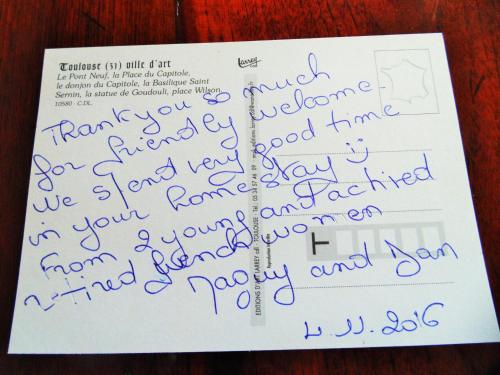 Toulouse (31) ville d'art
Le Pont Neuf, la Place du Capitole,
le donjon du Capitole, la Basilique Saint
Sernin, la statue de Goudouli, place Wilson.
10580 - C.DL.
Larrey
Thank you so much
for friendly welcome.
We spend very good time
in your home stay
From 2 young and actired
retired french women
Maguy and Dan
4.11.2016
EDITIONS D'ART LARREY - TOULOUSE - Tél : 05 34 57 46
Reproduction interdite
T